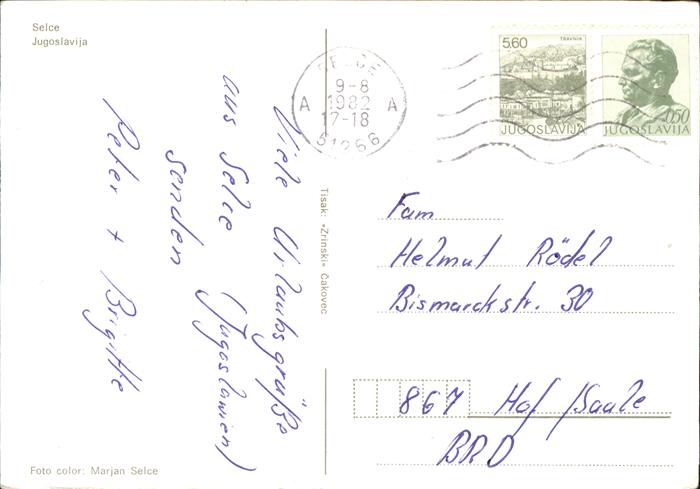 Selce
Jugoslavija
SELCE
9-8
A 1982 A
17-18
51266
5,60
TRAVNIK
JUGOSLAVIJA
0,50
JUGOSLAVIJA
Viele Urlaubsgrüße
aus Selce (Jugoslawien)
senden
Peter + Brigitte
Tisak: »Zrinski« Čakovec
Fam
Helmut Rödel
Bismarckstr. 30
867 Hof/Saale
BRD
Foto color: Marjan Selce